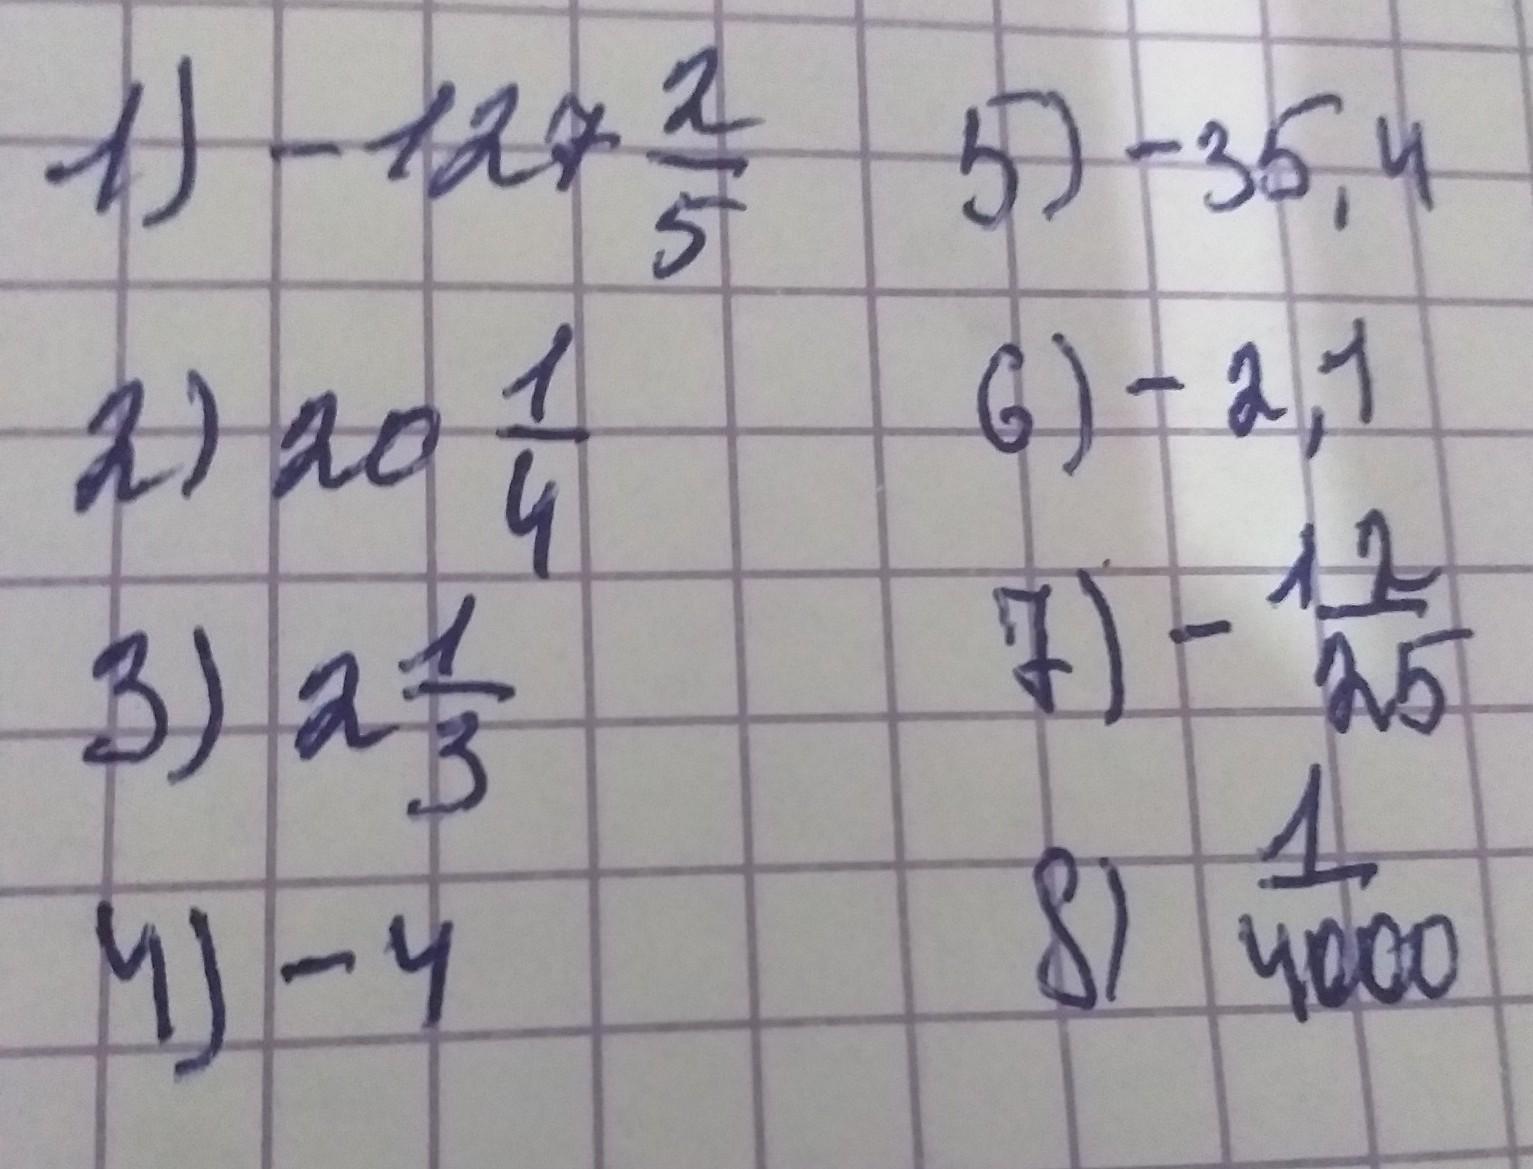 1) -127 2/5
2) 20 1/4
3) 2 1/3
4) -4
5) -35,4
6) -2,1
7) -1 2/25
8) 1/4000